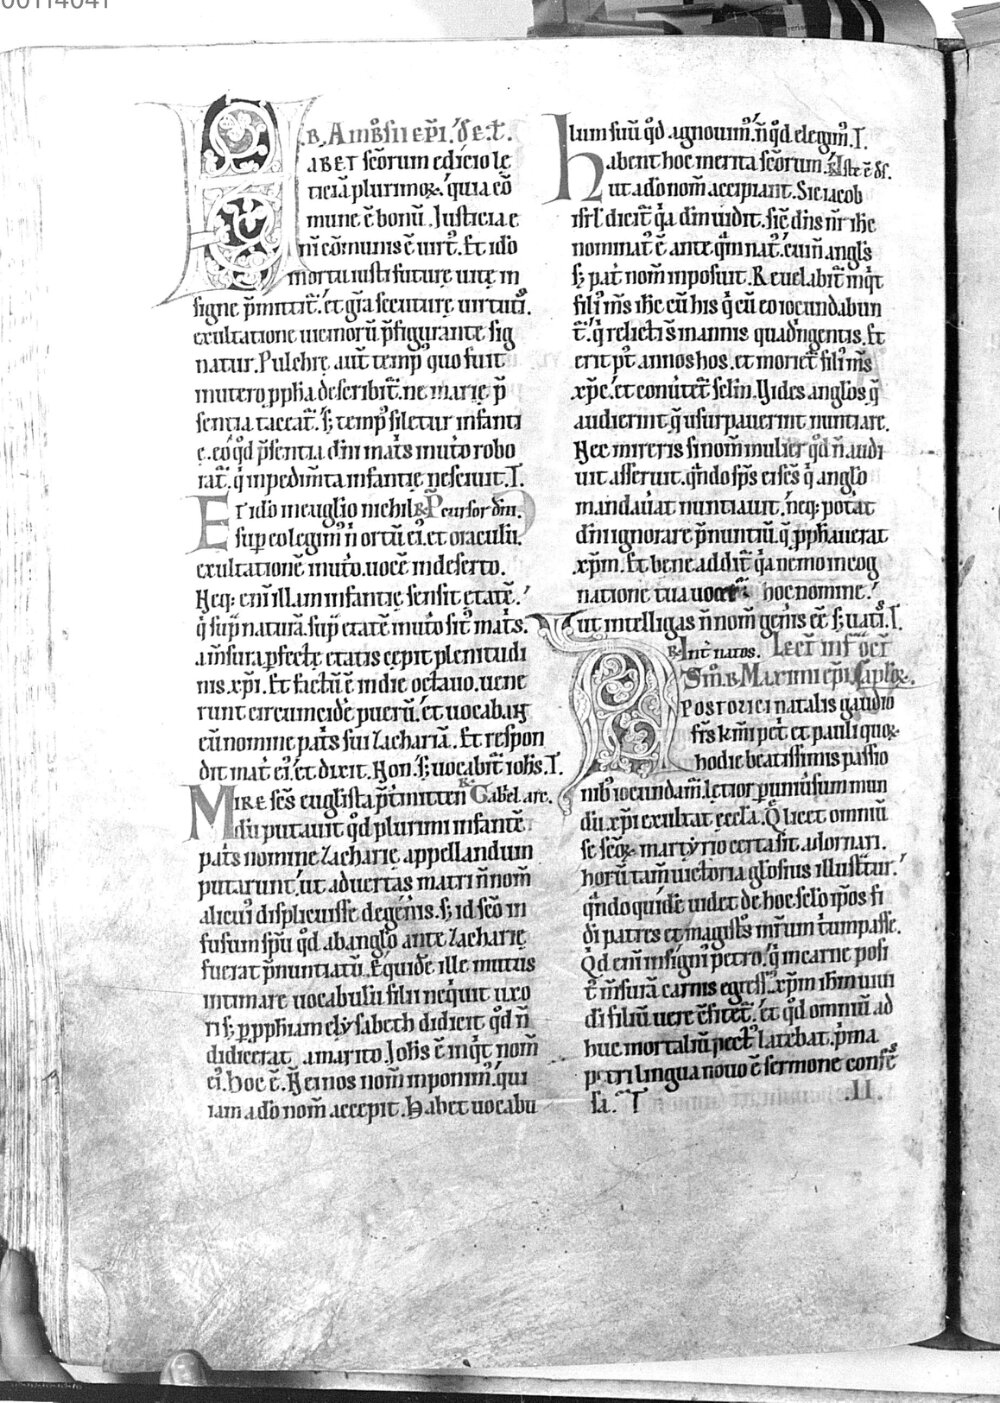 B. Ambsii epi. de ct.
HABET scoru edicio le
ticiā plurimoꝝ. quia cō
mune ē bonū. Iusticia e
nī cōmunis ē uirt᷑. Et ido
mortu iusti future uite in
signe p̄mittit᷑. et gr̄a secuture uirtuti᷑.
exultatione uernorū p̄figurante sig
natur. Pulchre aut̄ temp᷒ quo fuit
mutero ꝓpha describit᷑. ne marie p̄
sentia taceat᷑. s; temp᷒ siletur infanti
e. eo qd p̄sentia dn̄i mat̄s in utero robo
rat᷑. q̇ inpedim̄ta infantie nesciuit. I.
Et ido in euuglio nichil p̄cursor dn̄i.
sup eo legim᷒ n̄ ortū ei᷒. et oraculū.
exultationē in utō. uocē in deserto.
Neq; eni᷑ illam infantie sensit etatē.
q̇ sup̄ naturā. sup etatē in utō sit᷒ mat̄s.
a m̄sura ꝑfecte etatis cepit plenitudi
nis. xp̄i. Et factū ē in die octauo. uene
runt circumcide puerū. et uocabaꝗ
eū nomine pat̄s sui zachariā. Et respon
dit mat̄ ei᷒. et dixit. Non. S; uocabit᷑ iohs. I.
MIRE sc̄s euglista p̄mitten Gabel arc.
dū putauit qd plurimi infantē
pat̄s nomine zacharie appellandum
putarunt. ut aduertas matri n̄ nom̄
alicui᷒ displicuisse degen̄is. s; id sc̄o in
fusum sp̄u qd ab anglo ante zacharie
fuerat p̄nuntiatū. Et quidē ille mutus
intimare uocabulū filii nequit uxo
ri s; ꝑ ꝓphiam elysabeth didicit qd n̄
didicerat a marito. Iohs ē inq̇t nom̄
ei᷒. hoc ē. Nei nos nom̄ inponim᷒. qui
iam a do nom̄ accepit. Habet uocabu
lum suū qd agnouim᷒. n̄ qd elegim᷒. I.
Habent hoc merita sc̄orum. Iste ē
ut a do nom̄ accipiant. Sic iacob
isrl dicit᷑ q̄a dm̄ uidit. sic dn̄s nr̄ ihc
nominat᷒ ē ante q̄m nat᷒. cui n̄ angls
s; pat̄ nom̄ inposuit. Reuelabit᷑ inq̇t
fili᷒ m̄s ihc cū his q̇ cū eo iocundabun
t᷑. q̇ relicti s̄ in annis quadringentis. Et
erit pt᷑ annos hos. et moriet᷑ fili᷒ m̄s
xp̄c. et conūtet᷑ sclm̄. Vides anglos q̄
audierint q̄ usurpauerint nuntiare.
Nec mireris si nom̄ mulier qd n̄ audi
uit asseruit. q̄ndo sp̄s ei sc̄s q̇ anglo
mandauat nuntiauit. neq; potat
dn̄i ignorare p̄nuntiū. q̄ ꝓphauerat
xp̄m. Et bene addit᷑ q̄a nemo in cog
natione tua uocat᷑ hoc nomine.
Vt intelligas n̄ nom̄ gen̄is ee s; uatī. I.
B. Int̄ natos. Lect̄ inf̄ oct̄
Sm̄. B. Maximi ep̄i. Sap̄loꝝ.
Post orici natalis gaudio
fr̄s kmi pet̄ et pauli quoꝝ
hodie beatissimis passio
nib᷒ iocundam̄. letior ꝑ uniūsum mun
dū. xp̄i exultat eccl̄a. Q licet omniū
sc̄ scōꝝ martyrio certa sit. adornari.
horū tam̄ uictoria glōsius illustrat᷑.
q̄ndo quidē uidet de hoc sclo ip̄os si
di patres et magist̄s m̄rum t̄umpasse.
Qd eni᷑ insigni᷒ petro. q̇ in carne posi
t᷒ m̄surā carnis egress᷒. xp̄m ih̄m uiui
di filiū uere c̄fitet᷑. et qd omniū ad
huc mortaliū pect᷒ latebat. p̄ma
petri lingua nouo ē sermone confes
sa. T
.II.